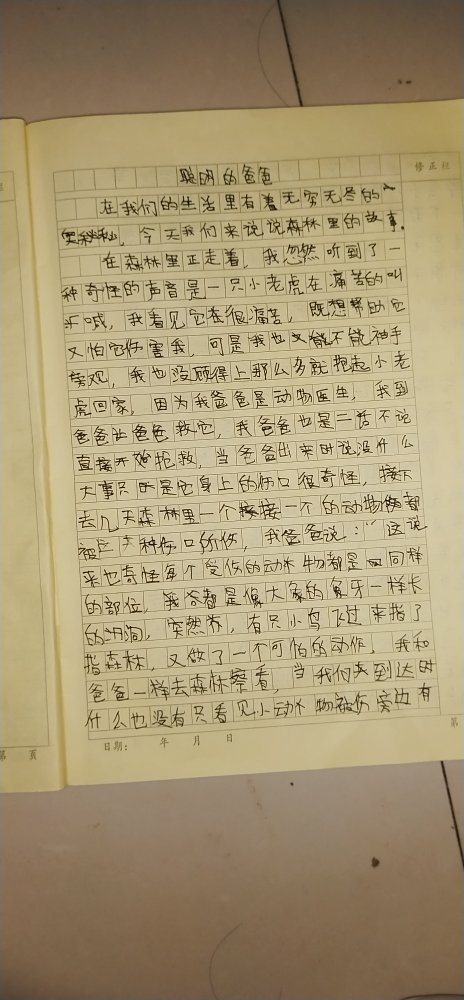 修正栏
聪明的爸爸
在我们的生活里有着无穷无尽的
奥秘，今天我们来说说森林里的故事。
在森林里正走着，我忽然听到了一
种奇怪的声音是一只小老虎在痛苦的叫
喊，我看见它在很痛苦，既想帮助它
又怕它伤害我，可是我也又能不能袖手
旁观，我也没顾得上那么多就抱起小老
虎回家，因为我爸爸是动物医生，我到
爸爸让爸爸救它，我爸爸也是二话不说
直接开始抢救，当爸爸出来时说没什么
大事只是它身上的伤口很奇怪，接下
去几天森林里一个接一个的动物都
被这种伤口所伤，我爸爸说：“这说
来也奇怪每个受伤的动物都是同样
的部位，都是像大象的象牙一样长
的洞，突然，有只小鸟飞过来指了
指森林，又做了一个可怕的动作，我和
爸爸一样去森林察看，当我们来到达时
什么也没有只看见小动物被伤旁边有
日期： 年 月 日
第 页
第